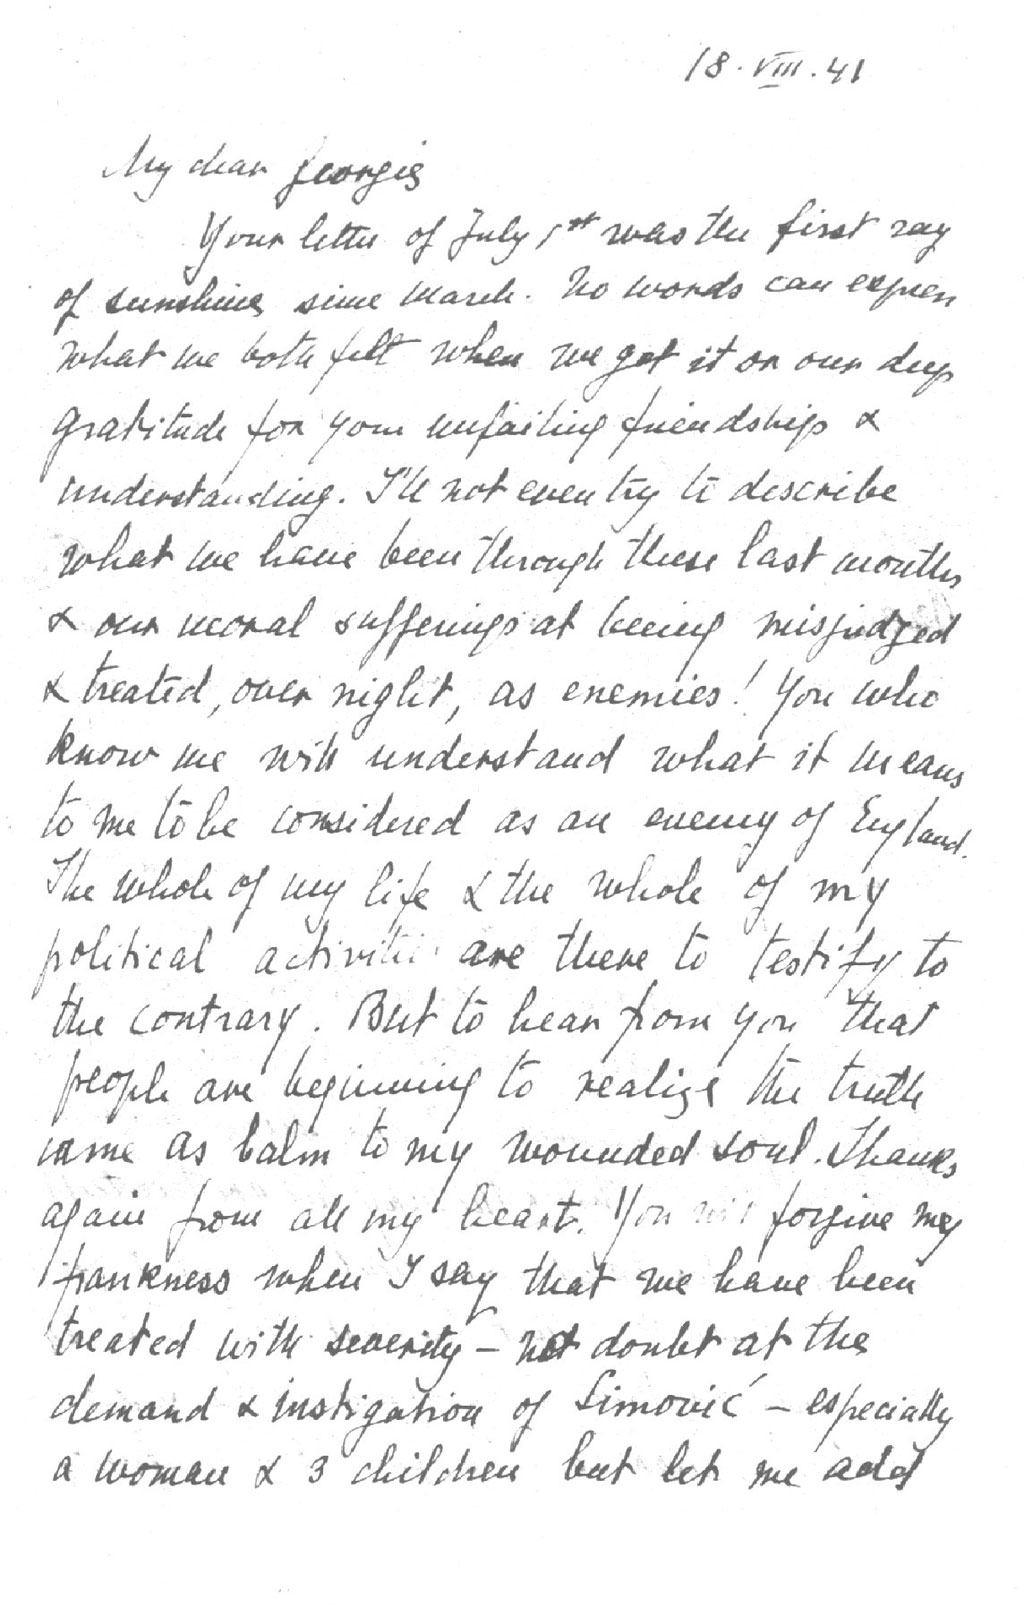 18.VIII.41
My dear Georgie
Your letter of July 1st was the first ray
of sunshine since March. No words can express
what we both felt when we got it or our deep
gratitude for your unfailing friendship &
understanding. I'll not even try to describe
what we have been through these last months
& our moral sufferings at being misjudged
& treated, over night, as enemies! You who
know me will understand what it means
to me to be considered as an enemy of England.
The whole of my life & the whole of my
political activities are there to testify to
the contrary. But to hear from you that
people are beginning to realize the truth
came as balm to my wounded soul. Thanks
again from all my heart. You will forgive my
frankness when I say that we have been
treated with severity – not doubt at the
demand & instigation of Simović – especially
a woman & 3 children but let me add